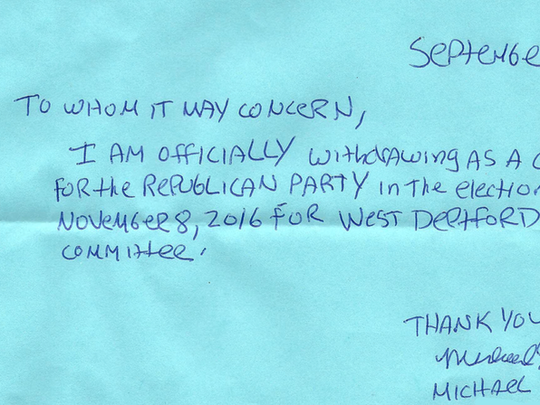 September
TO WHOM IT MAY CONCERN,
I AM OFFICIALLY withdrawing AS A C
FOR the REPUBLICAN PARTY in the election
NOVEMBER 8, 2016 FOR WEST DEPTFORD
COMMITTEE.
THANK YOU
MICHAEL